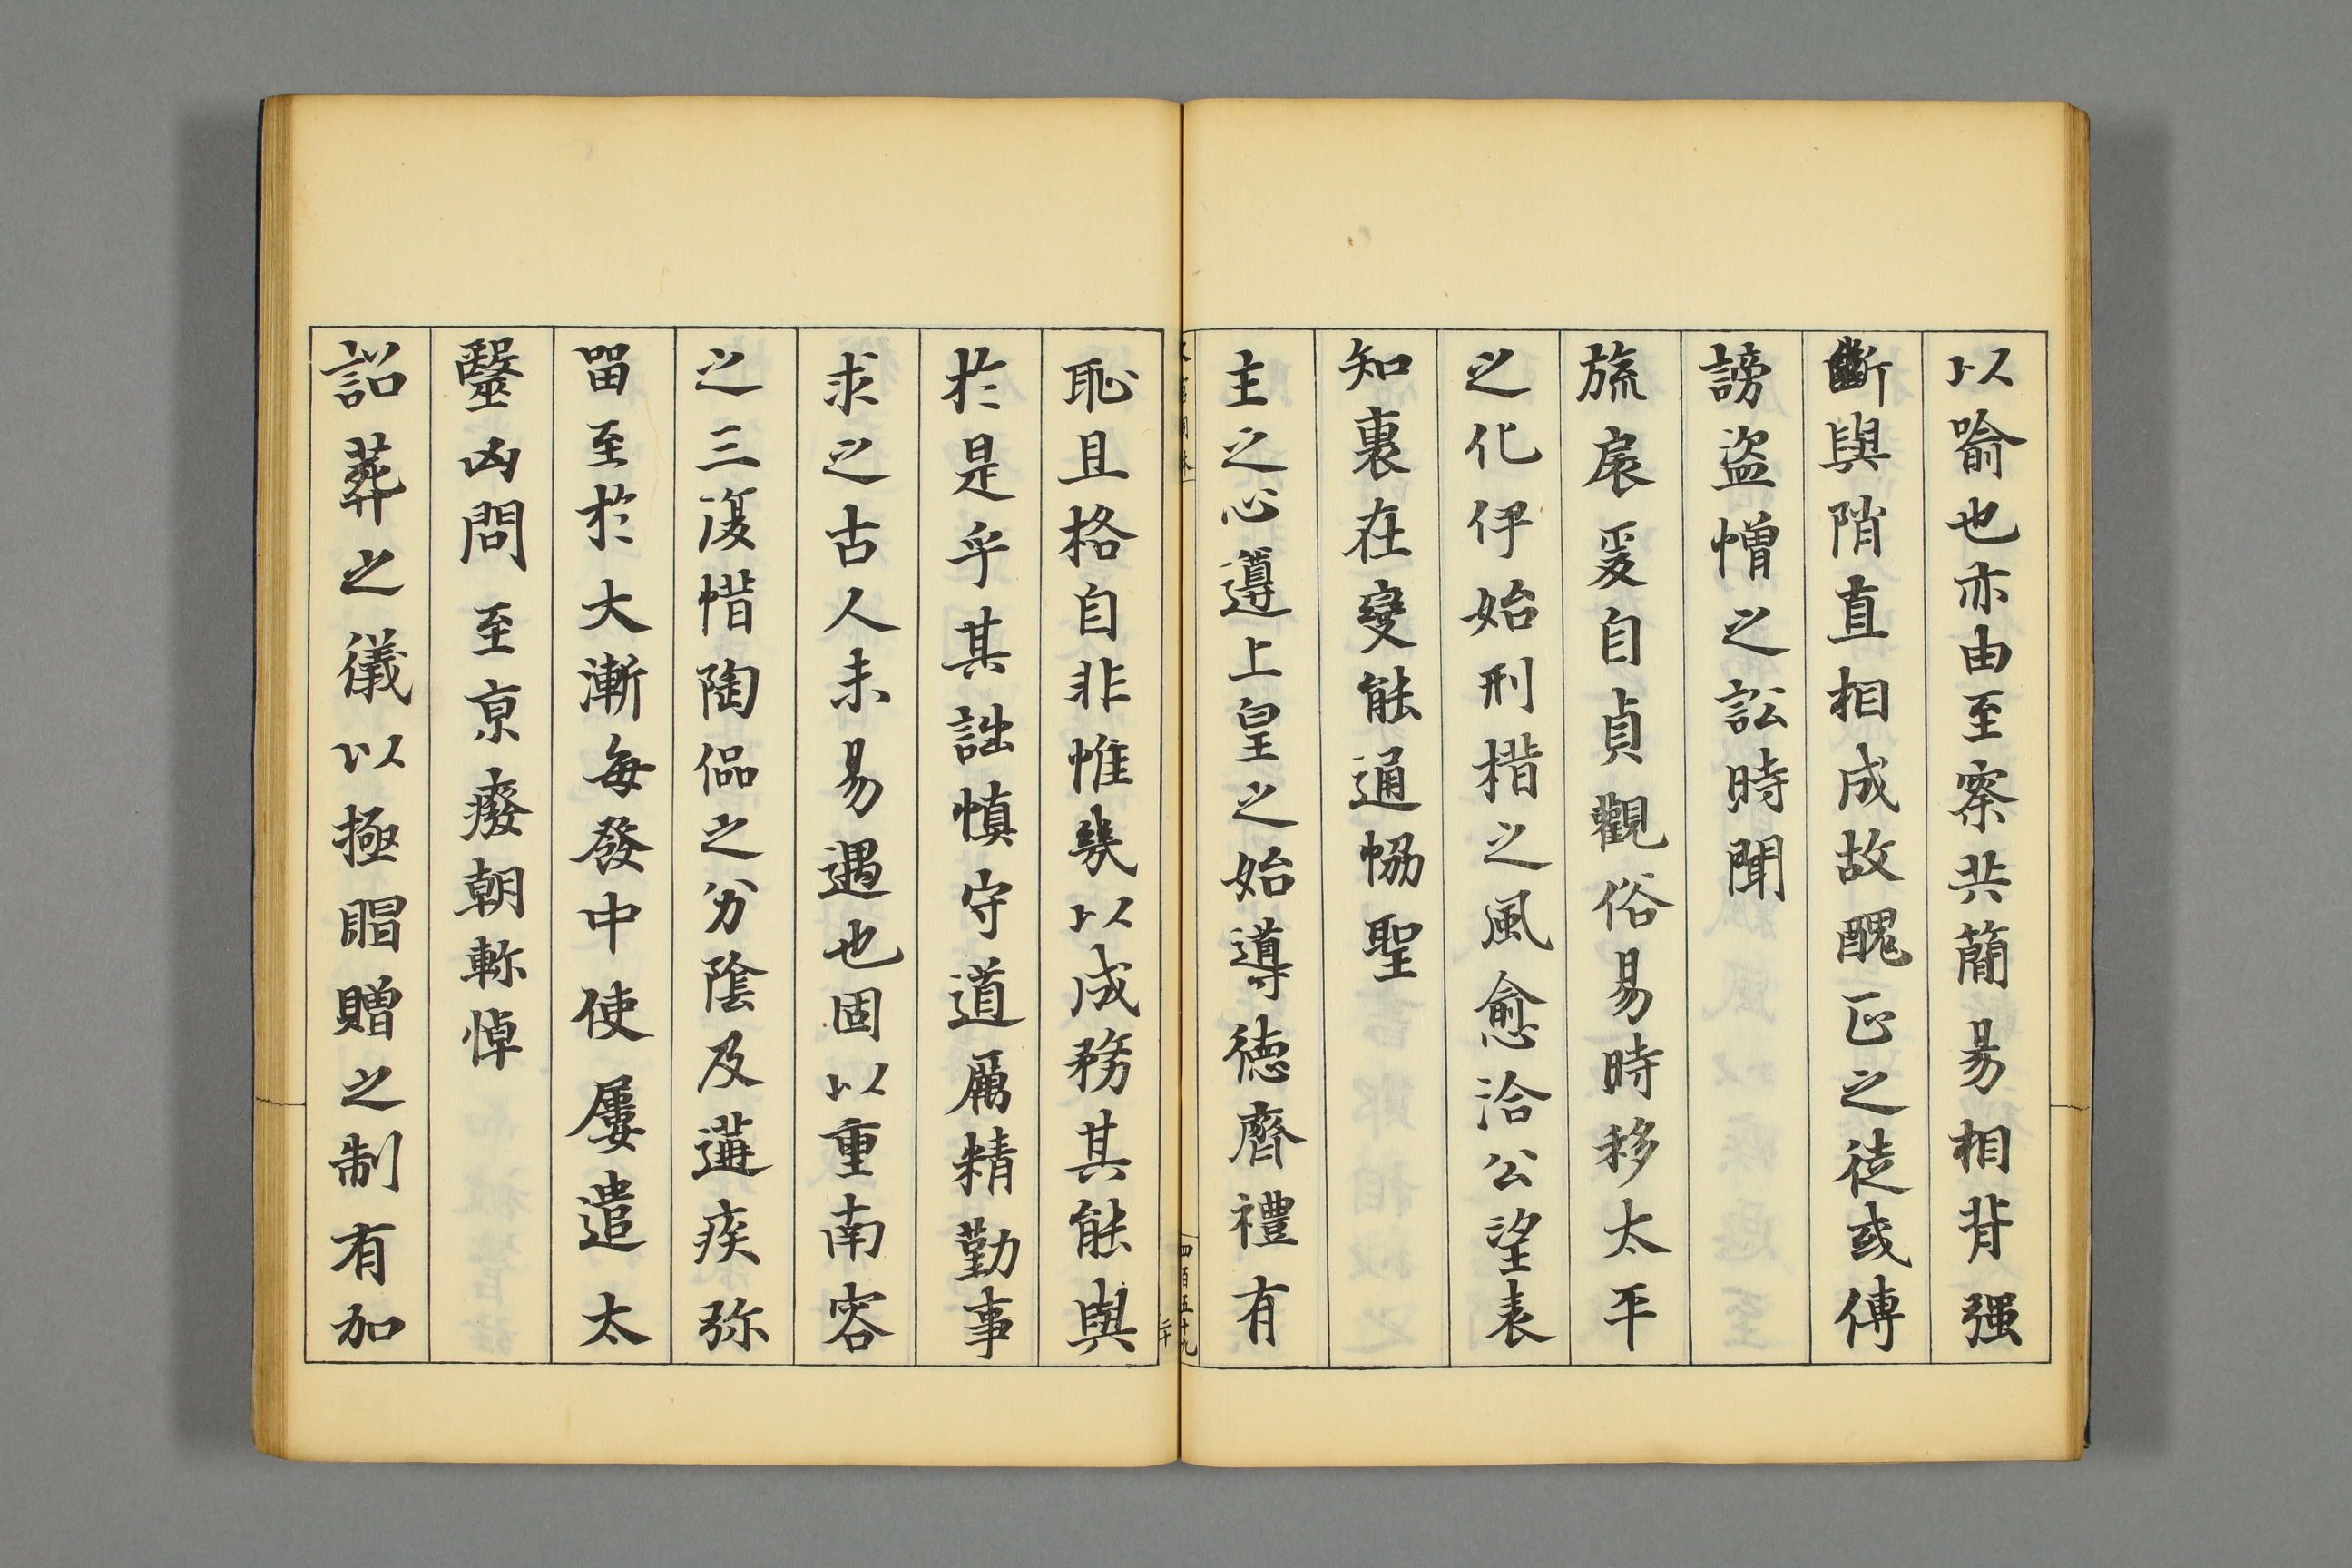 以喻也亦由至察共簡易相背强
斷與隋直相成故醜正之徒或傅
謗盜憎之訟時聞
旒扆爰自貞觀俗易時移太平
之化伊始刑措之風愈洽公望表
知裏在變能通恊聖
主之心遵上皇之始導德齊禮有
四百五十九
二十
恥且格自非惟幾以成務其能與
於是乎其詘慎守道厲精勤事
求之古人未易遇也固以重南容
之三復惜陶侃之分陰及遘疾弥
留至於大漸每發中使屢遣太
毉凶問至京癈朝軫悼
詔葬之儀以極賵贈之制有加